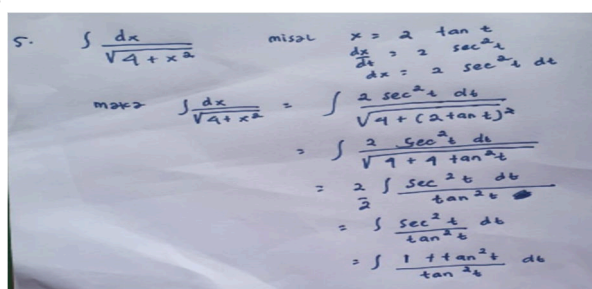 5. ∫ dx / √4 + x² misal x = 2 tan t
dx/dt = 2 sec² t
dx = 2 sec² t dt
maka ∫ dx / √4 + x² = ∫ 2 sec² t dt / √4 + (2 tan t)²
= ∫ 2 sec² t dt / √4 + 4 tan² t
= 2/2 ∫ sec² t dt / tan² t
= ∫ sec² t / tan² t dt
= ∫ 1 + tan² t / tan² t dt